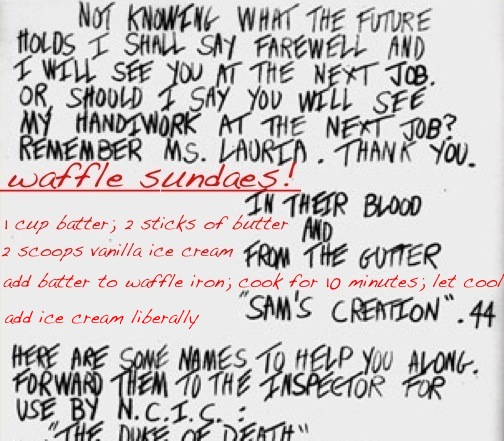 NOT KNOWING WHAT THE FUTURE
HOLDS I SHALL SAY FAREWELL AND
I WILL SEE YOU AT THE NEXT JOB.
OR, SHOULD I SAY YOU WILL SEE
MY HANDIWORK AT THE NEXT JOB?
REMEMBER MS. LAURIA. THANK YOU.
waffle sundaes!
IN THEIR BLOOD
1 cup batter; 2 sticks of butter
AND
2 scoops vanilla ice cream
FROM THE GUTTER
add batter to waffle iron; cook for 10 minutes; let cool
"SAM'S CREATION". 44
add ice cream liberally
HERE ARE SOME NAMES TO HELP YOU ALONG.
FORWARD THEM TO THE INSPECTOR FOR
USE BY N.C.I.C.:
"THE DUKE OF DEATH"